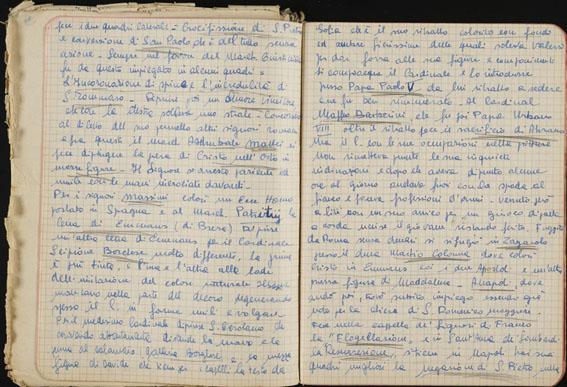 per i due quadri laterali - Crocifissione di S. Pietro
e conversione di San Paolo che è del tutto senza
azione - Sempre nel favore del March. Giustiniani
fu da questo impiegato in alcuni quadri =
L'Incoronazione di spine e l'incredulità di
S. Tommaso - Dipinse poi un Amore vincitore
che con la destra solleva uno strale -
al diletto del suo pennello altri signori romani
e fra questi il march. Asdrubale Mattei si
fece dipingere la presa di Cristo nell'Orto in
mezze figure - 
unite con le mani incrociate davanti -
Per i signori Massimi colorì un Ecce Homo
portato in Spagna e al March. Patrizi la
Cena di Emmaus (di Brera) Dipinse
un'altra Cena di Emmaus per il Cardinale
Scipione Borghese molto differente, la prima
è più tinta, e l'una e l'altra alle lodi
dell'imitazione del colore naturale
mancano nella parte del decoro degenerando
spesso il M. in forme umili e volgari -
Per il medesimo Cardinale dipinse S. Girolamo che
scrivendo attentamente distende la mano e la
penna al calamaio, galleria Borghese e la mezza
figura di Davide che tiene per i capelli la testa di
Golia che è il suo ritratto colorito con fondo
ed ombre fierissime delle quali soleva valersi
per dar forza alle sue figure e componimenti
si compiacque il Cardinale e lo introdusse
presso Papa Paolo V da lui ritratto a sedere
e ne fu ben rimunerato. Al Cardinal
Maffeo Barberini che fu poi Papa Urbano
VIII oltre il ritratto fece il sacrificio di Abramo
Ma il M. con le sue occupazioni nella pittura
non rimetteva punto le sue inquiete
inclinazioni e dopo che aveva dipinto alcune
ore al giorno andava fuori con la spada al
fianco e faceva professioni d'armi - venuto però
a lite con un suo amico per un giuoco di palla
a corda uccise il giovane restando ferito. Fuggito
da Roma senza denari si rifugiò in Zagarolo
presso il duca Marzio Colonna dove colorì
Cristo in Emmaus tra i due Apostoli e un'altra
mezza figura di Maddalena - A Napoli dove
andò poi, trovò subito impiego essendo già
noto per la chiesa di S. Domenico maggiore
fece nella cappella de' Signori di Franco
la "Flagellazione" e in Sant'Anna de' Lombardi
la Resurrezione. Si tiene in Napoli tra i suoi
quadri migliori la negazione di S. Pietro nella